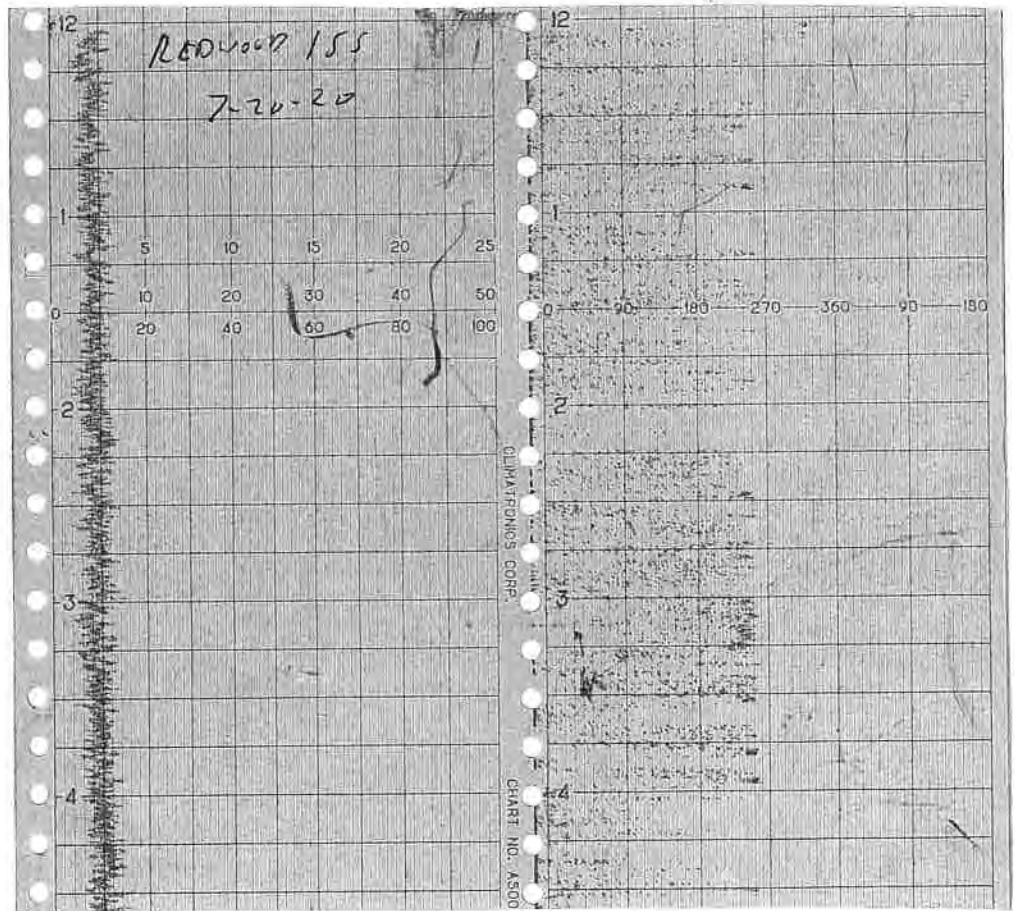 12
REDWOOD 155
7-20-20
1
5 10 15 20 25
10 20 30 40 50
0
20 40 60 80 100
2
3
4
CLIMATRONICS CORP.
CHART NO. A500
12
1
0 90 180 270 360 90 180
2
3
4